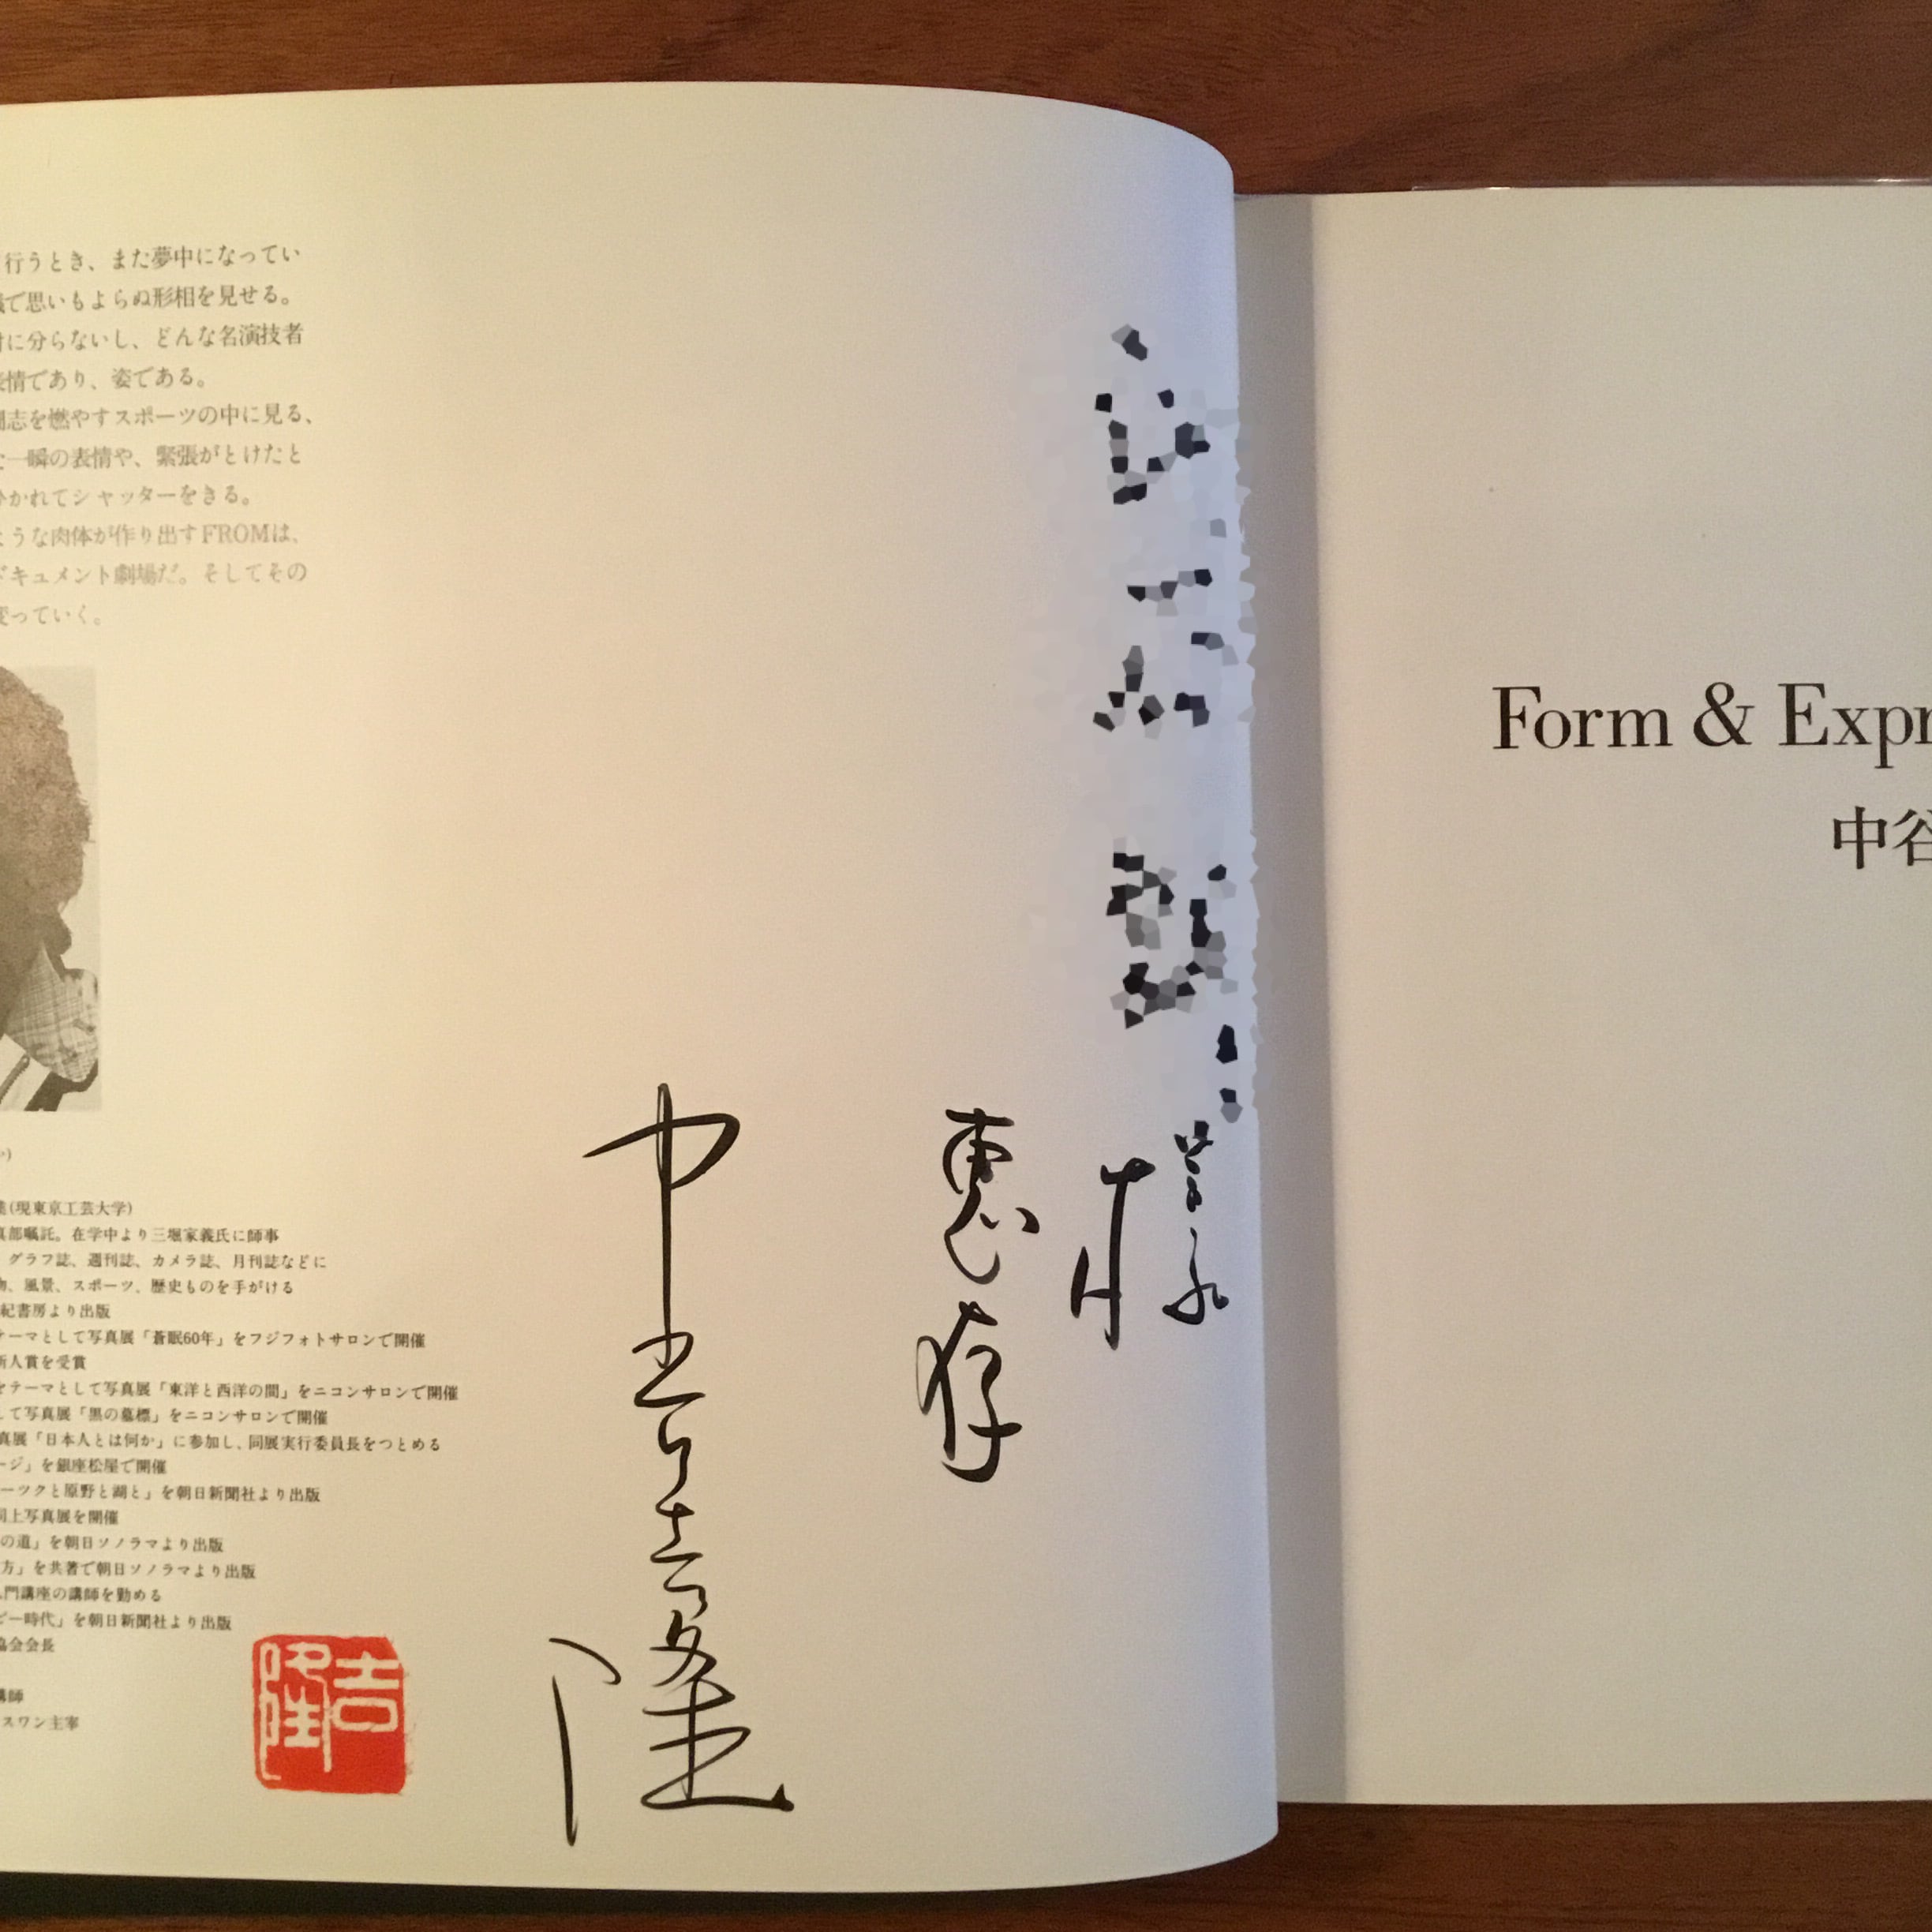 行うとき、また夢中になってい
で思いもよらぬ形相を見せる。
に分らないし、どんな名演技者
情であり、姿である。
志を燃やすスポーツの中に見る、
一瞬の表情や、緊張がとけたと
かれてシャッターをきる。
ような肉体が作り出すFROMは、
ドキュメント劇場だ。そしてその
変っていく。
(現東京工芸大学)
真部嘱託。在学中より三堀家義氏に師事
グラフ誌、週刊誌、カメラ誌、月刊誌などに
物、風景、スポーツ、歴史ものを手がける
紀書房より出版
テーマとして写真展「蒼眠60年」をフジフォトサロンで開催
新人賞を受賞
をテーマとして写真展「東洋と西洋の間」をニコンサロンで開催
して写真展「黒の墓標」をニコンサロンで開催
真展「日本人とは何か」に参加し、同展実行委員長をつとめる
ージ」を銀座松屋で開催
ーツクと原野と湖と」を朝日新聞社より出版
同上写真展を開催
の道」を朝日ソノラマより出版
方」を共著で朝日ソノラマより出版
入門講座の講師を勤める
ビー時代」を朝日新聞社より出版
協会会長
講師
スワン主宰
吉隆
様
恵存
中谷吉隆
Form & Expr
中谷